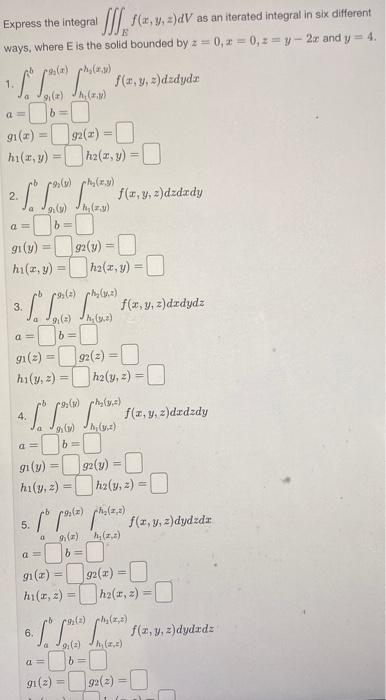 Express the integral ∭_E f(x, y, z)dV as an iterated integral in six different
ways, where E is the solid bounded by z = 0, x = 0, z = y − 2x and y = 4.
1. ∫_a^b ∫_{g₁(x)}^{g₂(x)} ∫_{h₁(x,y)}^{h₂(x,y)} f(x, y, z)dzdydx
a = □ b = □
g1(x) = □ g2(x) = □
h1(x, y) = □ h2(x, y) = □
2. ∫_a^b ∫_{g₁(y)}^{g₂(y)} ∫_{h₁(x,y)}^{h₂(x,y)} f(x, y, z)dzdxdy
a = □ b = □
g1(y) = □ g2(y) = □
h1(x, y) = □ h2(x, y) = □
3. ∫_a^b ∫_{g₁(z)}^{g₂(z)} ∫_{h₁(y,z)}^{h₂(y,z)} f(x, y, z)dxdydz
a = □ b = □
g1(z) = □ g2(z) = □
h1(y, z) = □ h2(y, z) = □
4. ∫_a^b ∫_{g₁(y)}^{g₂(y)} ∫_{h₁(y,z)}^{h₂(y,z)} f(x, y, z)dxdzdy
a = □ b = □
g1(y) = □ g2(y) = □
h1(y, z) = □ h2(y, z) = □
5. ∫_a^b ∫_{g₁(x)}^{g₂(x)} ∫_{h₁(x,z)}^{h₂(x,z)} f(x, y, z)dydzdx
a = □ b = □
g1(x) = □ g2(x) = □
h1(x, z) = □ h2(x, z) = □
6. ∫_a^b ∫_{g₁(z)}^{g₂(z)} ∫_{h₁(x,z)}^{h₂(x,z)} f(x, y, z)dydxdz
a = □ b = □
g1(z) = □ g2(z) = □